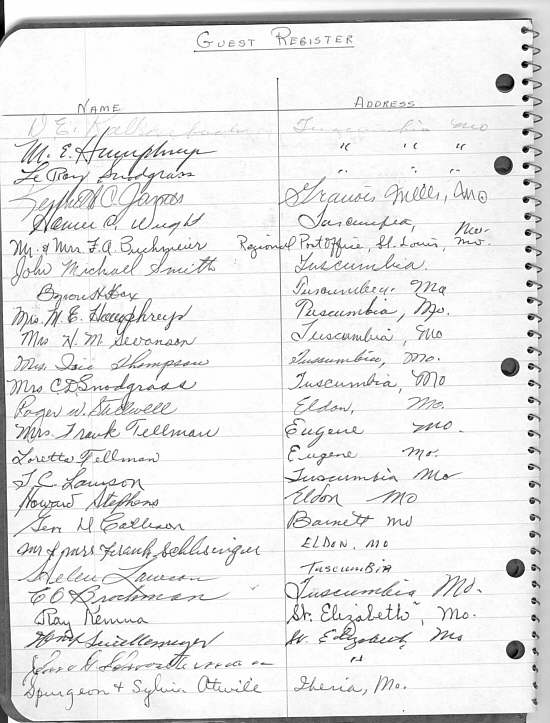 GUEST REGISTER
NAME ADDRESS
D. E. Kallenbach Tuscumbia Mo
M. E. Humphreys " " "
Le Roy Snodgrass " " "
Kenneth C. James Gravois Mills, Mo
Homer C. Wright Tuscumbia, Mo.
Mr. & Mrs. F. A. Buchmeier Regional Post Office, St. Louis, Mo.
John Michael Smith Tuscumbia.
Byron H. Tuscumbia Mo
Mrs. M. E. Humphreys Tuscumbia, Mo.
Mrs H. M. Swanson Tuscumbia, Mo
Mrs. Thompson Tuscumbia, Mo.
Mrs C. D. Snodgrass Tuscumbia, Mo
Roger W. Stillwell Eldon, Mo.
Mrs. Frank Tellman Eugene Mo.
Loretta Tellman Eugene Mo.
T. C. Lawson Tuscumbia Mo
Howard Stephens Eldon Mo
Geo. H Barnett Mo
Mr & Mrs Frank Schlesinger ELDON, MO
Helen Lawson TUSCUMBIA
E O Brockman Tuscumbia Mo.
Ray Kemna St. Elizabeth, Mo.
St. Elizabeth, Mo
"
Spurgeon & Sylvia Atwill Iberia, Mo.